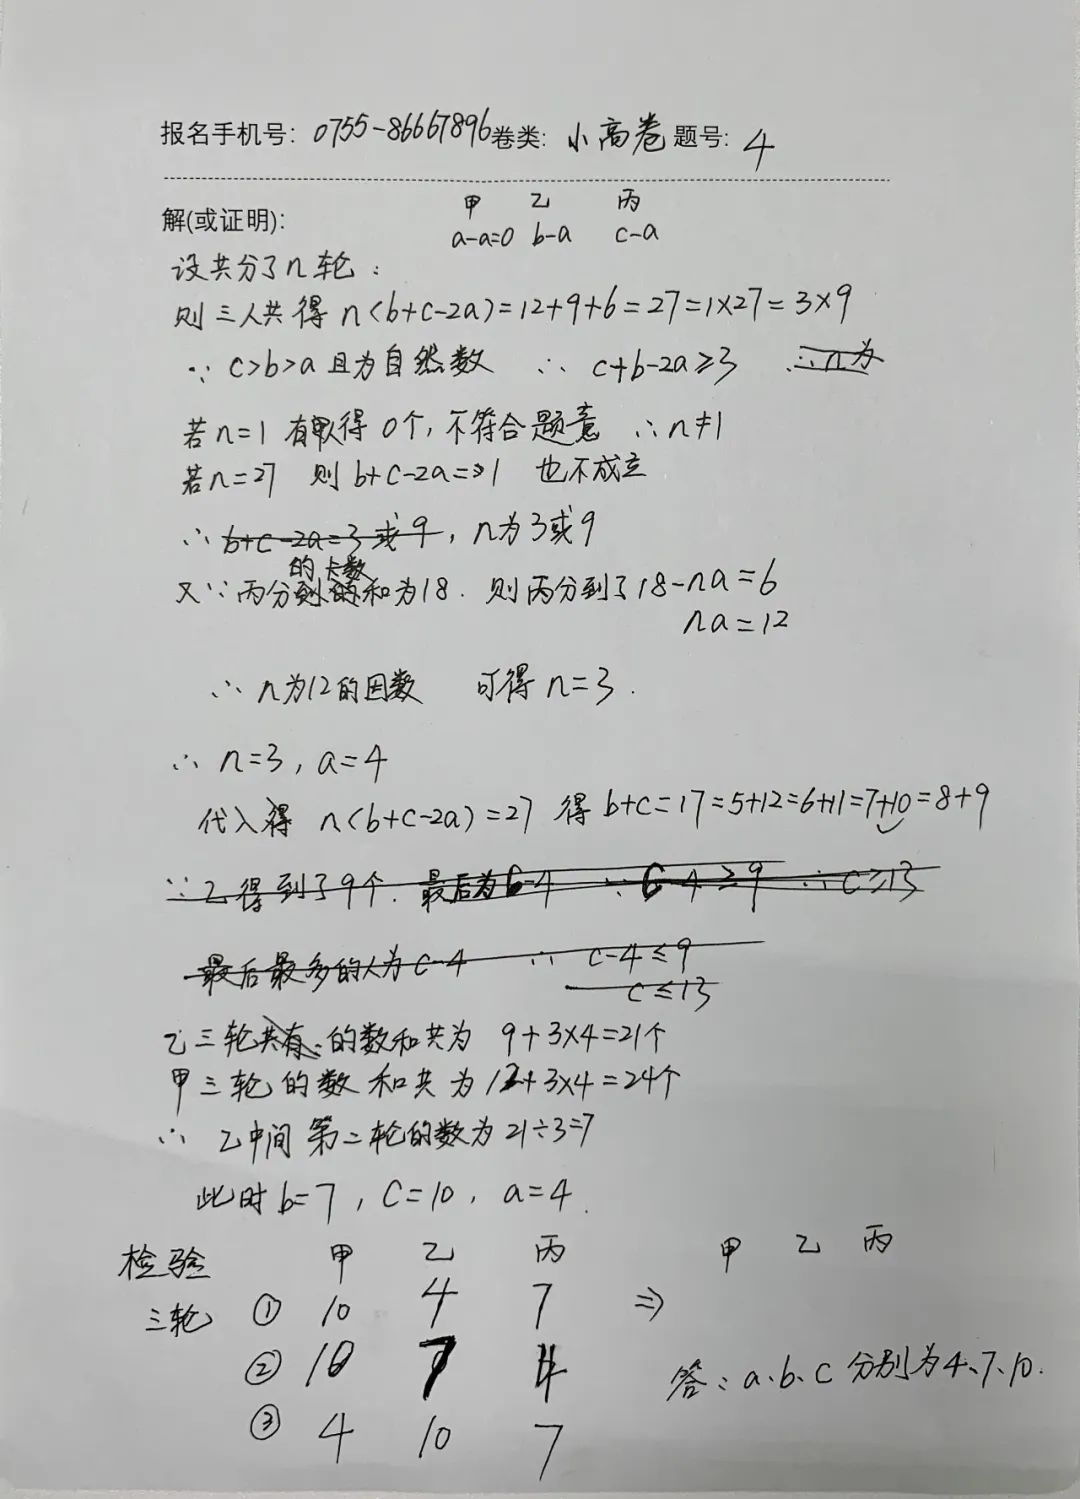 报名手机号: 0755-86667896 卷类: 小高卷 题号: 4
甲 乙 丙
解(或证明): a-a=0 b-a c-a
设共分了n轮:
则三人共得 n(b+c-2a)=12+9+6=27=1×27=3×9
∵ c>b>a 且为自然数 ∴ c+b-2a≥3 ∴n为
若n=1 有甲得0个,不符合题意 ∴n≠1
若n=27 则 b+c-2a=1 也不成立
∴ b+c-2a=3或9, n为3或9
的卡数
又∵丙分到的和为18. 则丙分到了18-na=6
na=12
∴ n为12的因数 可得n=3.
∴ n=3, a=4
代入得 n(b+c-2a)=27 得 b+c=17=5+12=6+11=7+10=8+9
∵乙得到了9个. 最后为c-4 ∵ c-4≥9 ∴c≥13
最后最多的人为c-4 ∴ c-4≤9
c≤13
乙三轮共有的数和共为 9+3×4=21个
甲三轮的数和共为12+3×4=24个
∴ 乙中间第二轮的数为21÷3=7
此时b=7, c=10, a=4.
检验 甲 乙 丙 甲 乙 丙
三轮 ① 10 4 7 ⇒
② 10 7 4 答: a、b、c分别为4、7、10.
③ 4 10 7